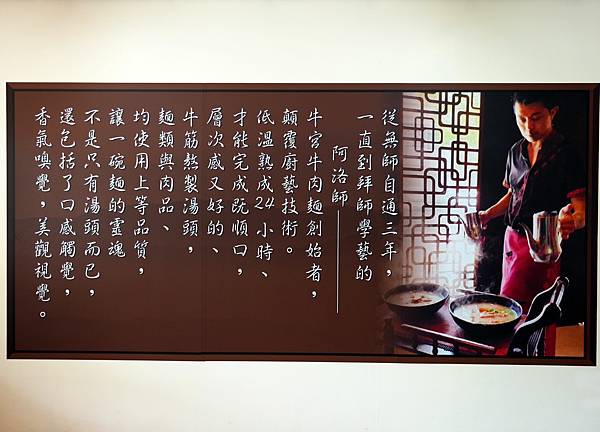 從無師自通三年，
一直到拜師學藝的
阿洛師
牛宮牛肉麵創始者，
顛覆廚藝技術。
低溫熟成24小時、
才能完成既順口，
層次感又好的、
牛筋熬製湯頭，
麵類與肉品、
均使用上等品質，
讓一碗麵的靈魂
不是只有湯頭而已，
還包括了口感觸覺，
香氣嗅覺，美觀視覺。